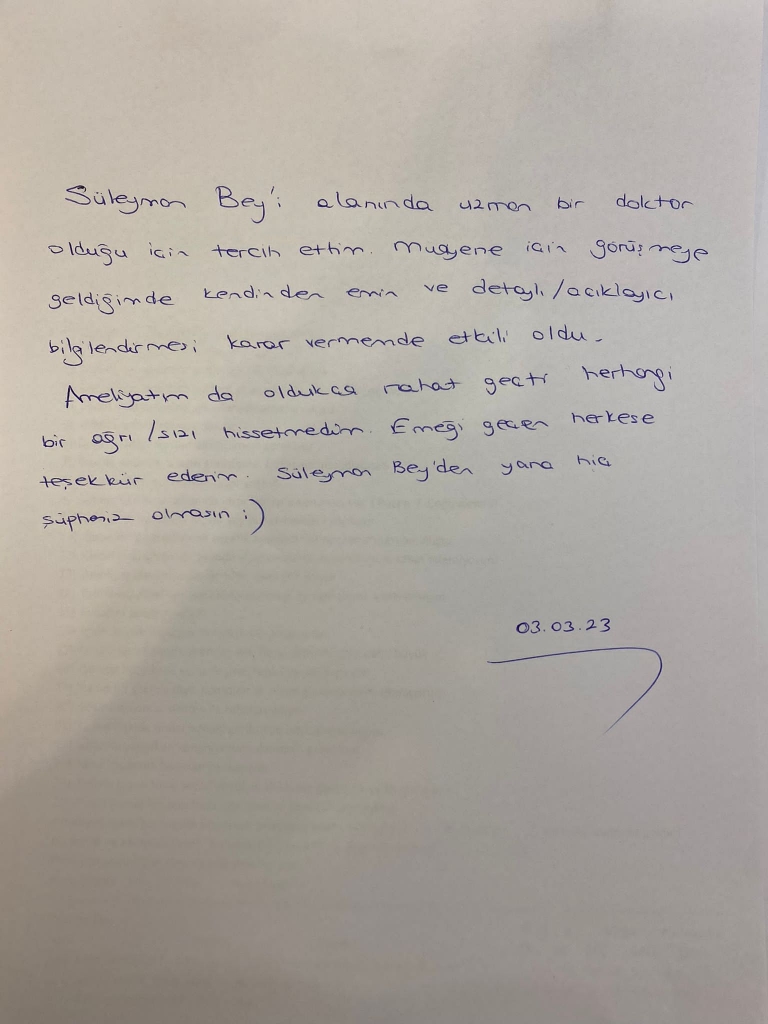 Süleyman Bey'i alanında uzman bir doktor
olduğu için tercih ettim. Muayene için görüşmeye
geldiğimde kendinden emin ve detaylı/açıklayıcı
bilgilendirmesi karar vermemde etkili oldu.
Ameliyatım da oldukça rahat geçti herhangi
bir ağrı/sızı hissetmedim. Emeği geçen herkese
teşekkür ederim. Süleyman Bey'den yana hiç
şüpheniz olmasın :)
03.03.23